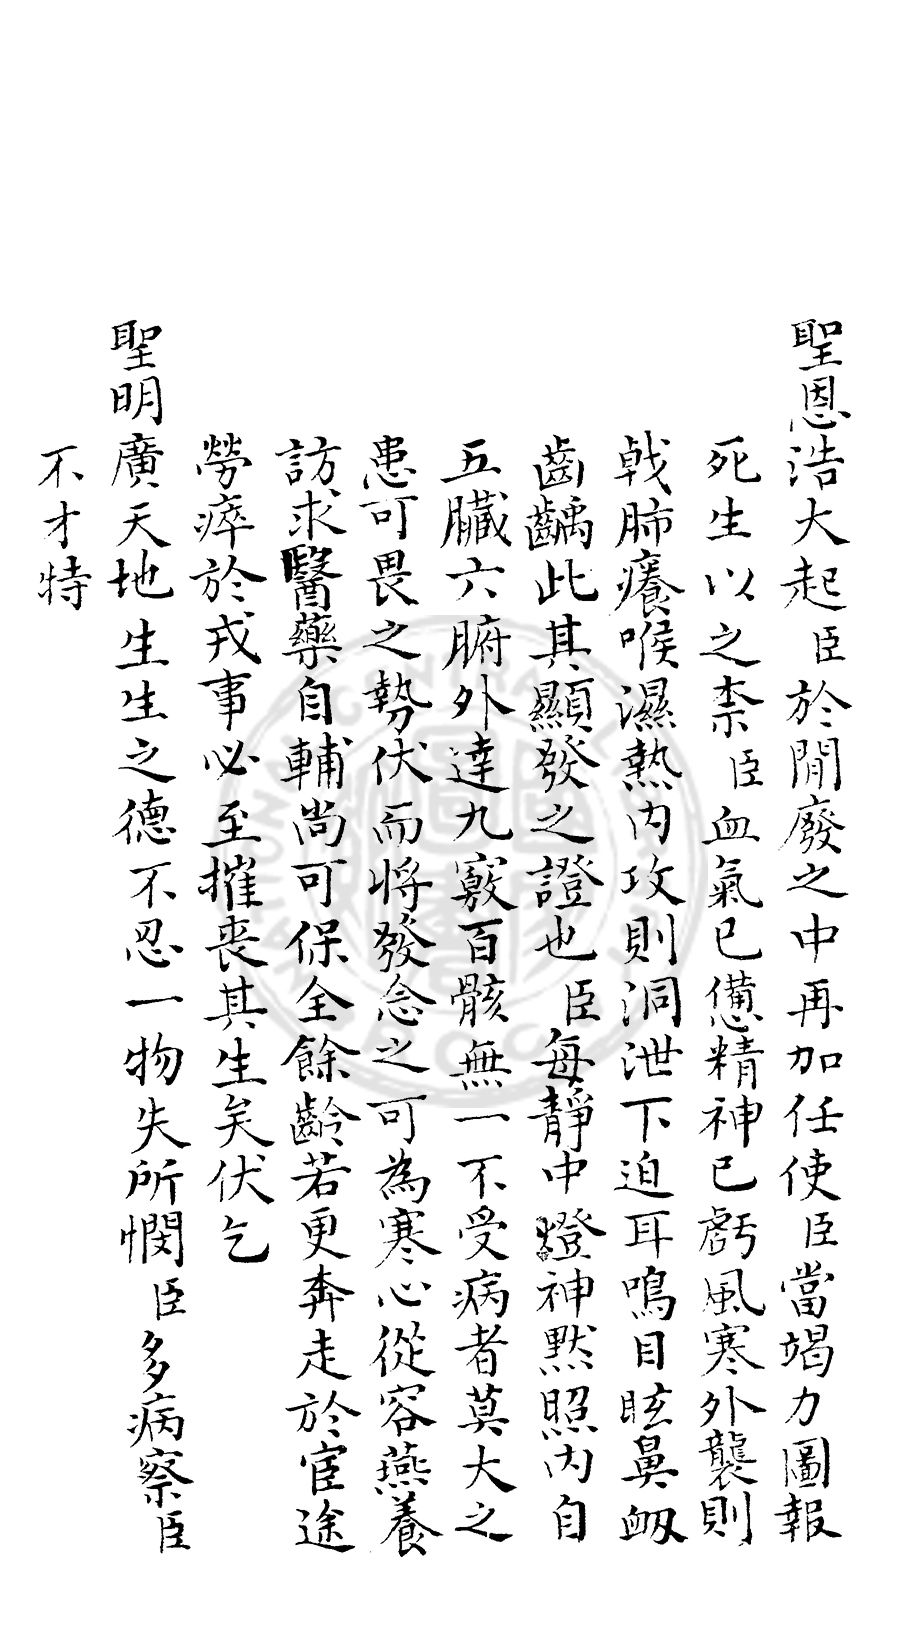 聖恩浩大起臣於閒廢之中再加任使臣當竭力圖報
死生以之柰臣血氣已憊精神已虧風寒外襲則
戟肺癢喉濕熱内攻則洞泄下迫耳鳴目眩鼻衂
齒齲此其顯發之證也臣每靜中燈神默照内自
五臟六腑外達九竅百骸無一不受病者莫大之
患可畏之勢伏而將發念之可為寒心從容燕養
訪求醫藥自輔尚可保全餘齡若更奔走於宦途
勞瘁於戎事必至摧喪其生矣伏乞
聖明廣天地生生之德不忍一物失所憫臣多病察臣
不才特